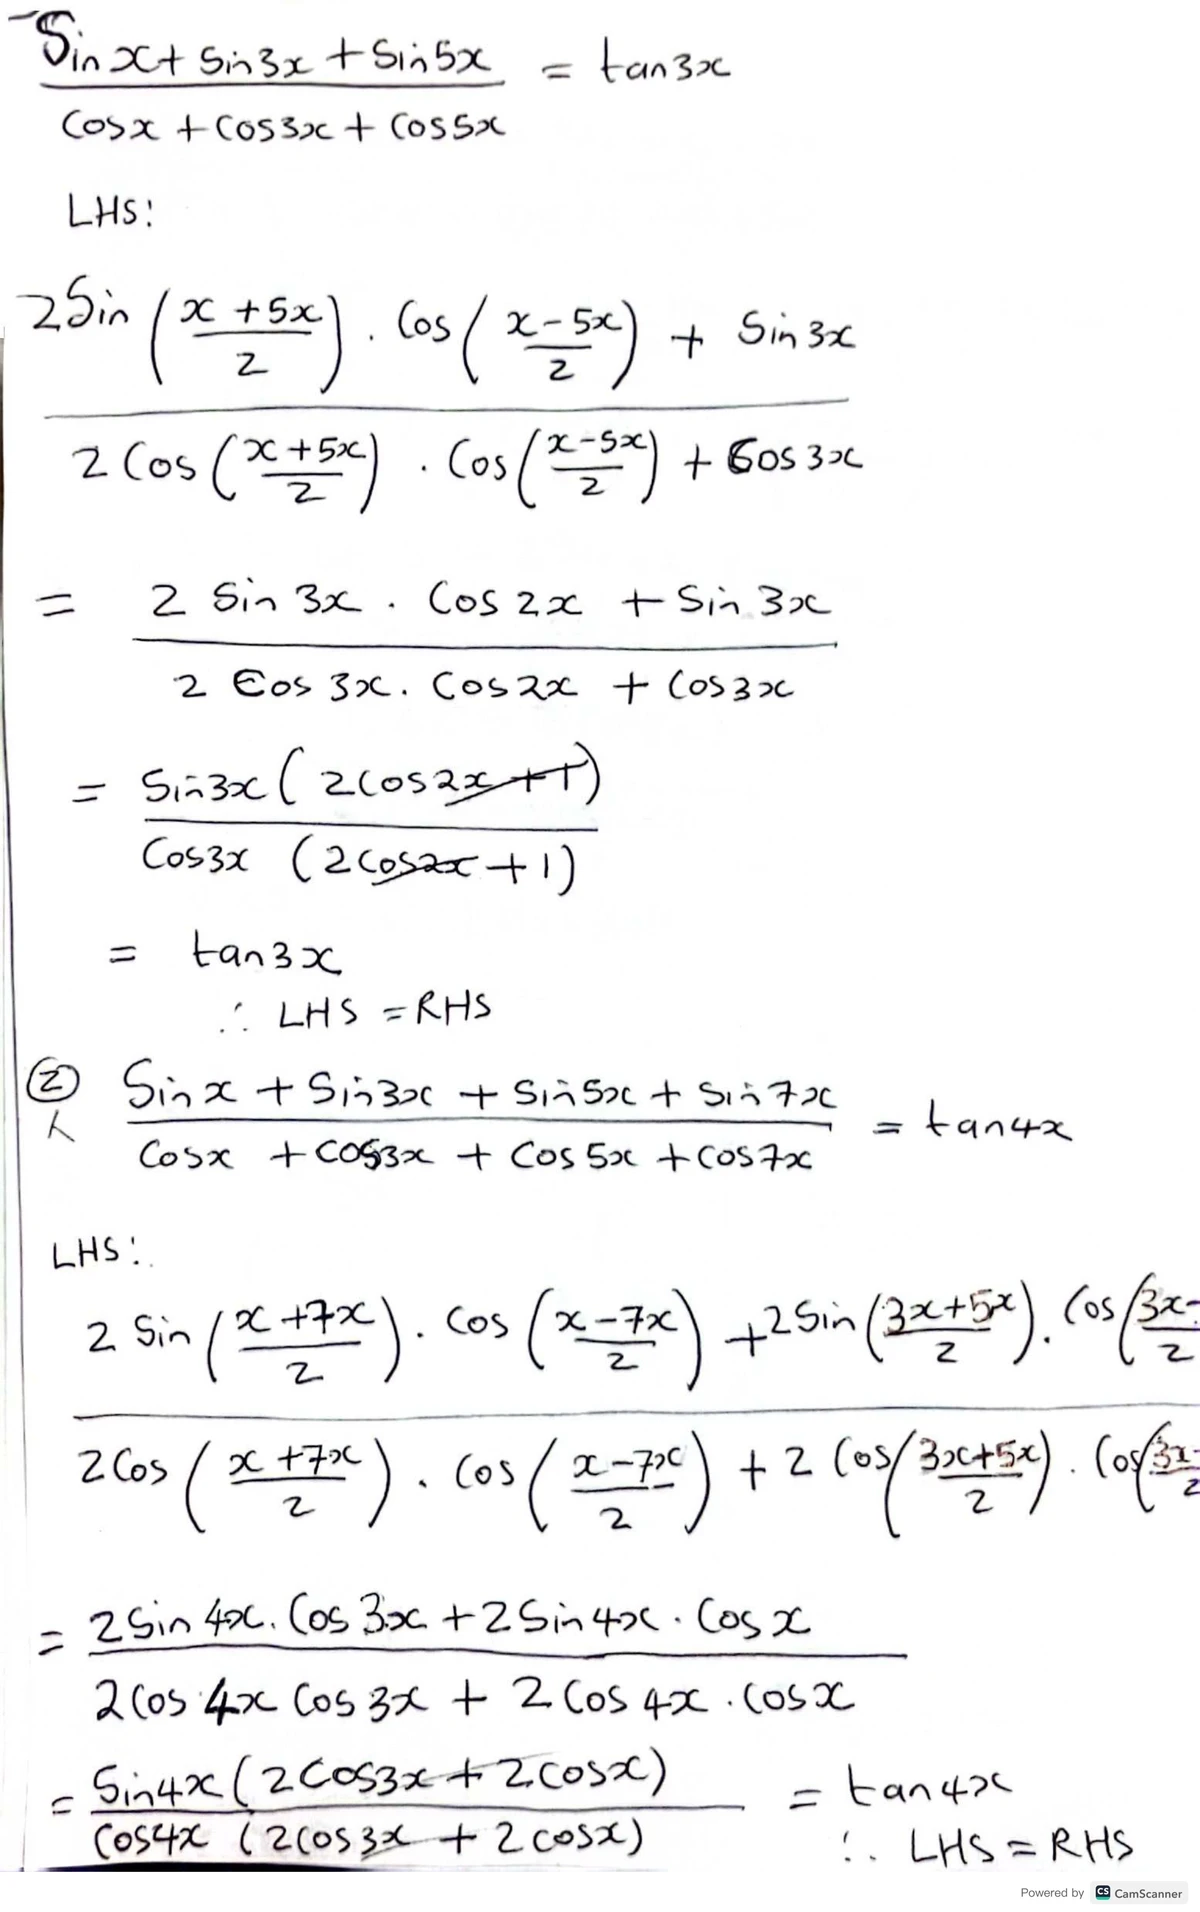 Sin x + Sin3x + Sin5x = tan3x
Cosx + Cos3x + Cos5x
LHS:
2Sin (x + 5x / 2) . Cos (x - 5x / 2) + Sin 3x
2 Cos (x + 5x / 2) . Cos (x - 5x / 2) + Cos 3x
= 2 Sin 3x . Cos 2x + Sin 3x
2 Cos 3x . Cos 2x + Cos 3x
= Sin3x ( 2Cos2x + 1)
Cos3x (2Cos2x + 1)
= tan3x
∴ LHS = RHS
② Sin x + Sin3x + Sin5x + Sin7x = tan4x
Cosx + Cos3x + Cos 5x + Cos7x
LHS:
2 Sin (x + 7x / 2) . Cos (x - 7x / 2) + 2Sin (3x + 5x / 2) . Cos (3x - / 2
2 Cos (x + 7x / 2) . Cos (x - 7x / 2) + 2 Cos (3x + 5x / 2) . Cos (3x - / 2
= 2Sin 4x . Cos 3x + 2 Sin 4x . Cos x
2 Cos 4x Cos 3x + 2 Cos 4x . Cosx
= Sin4x ( 2Cos3x + 2Cosx) = tan4x
Cos4x (2Cos3x + 2Cosx) ∴ LHS = RHS
Powered by CS CamScanner